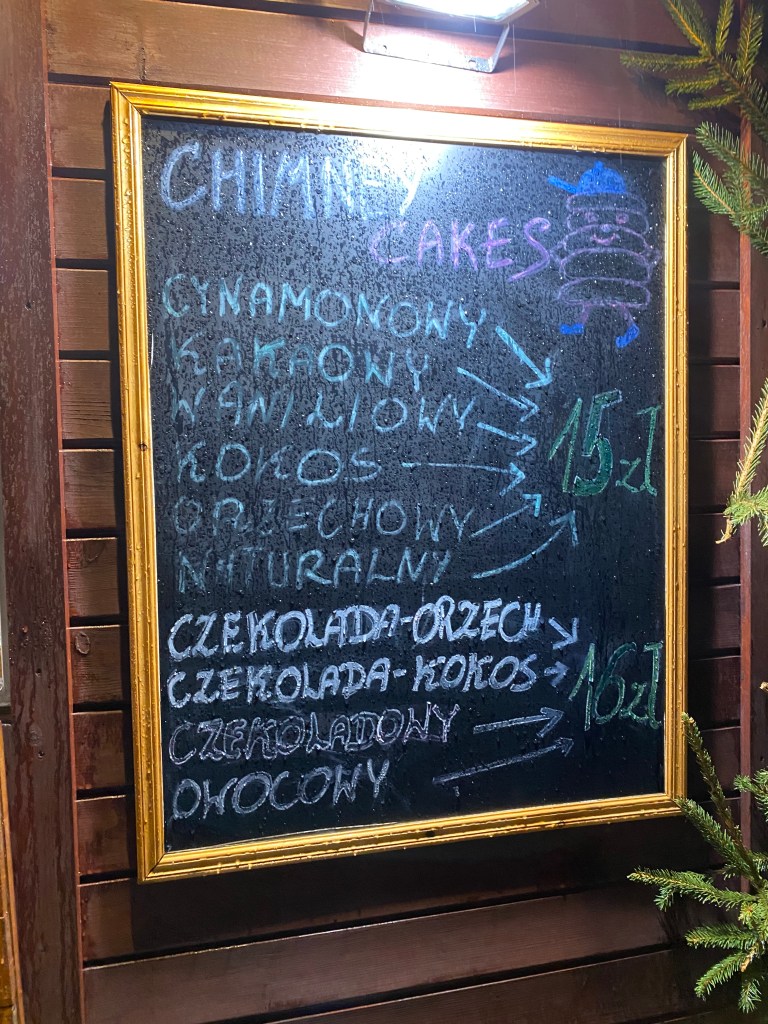 CHIMNEY
CAKES
CYNAMONOWY
KAKAOWY
WANILIOWY
KOKOS
ORZECHOWY
NATURALNY
15zł
CZEKOLADA-ORZECH
CZEKOLADA-KOKOS
CZEKOLADOWY
OWOCOWY
16zł